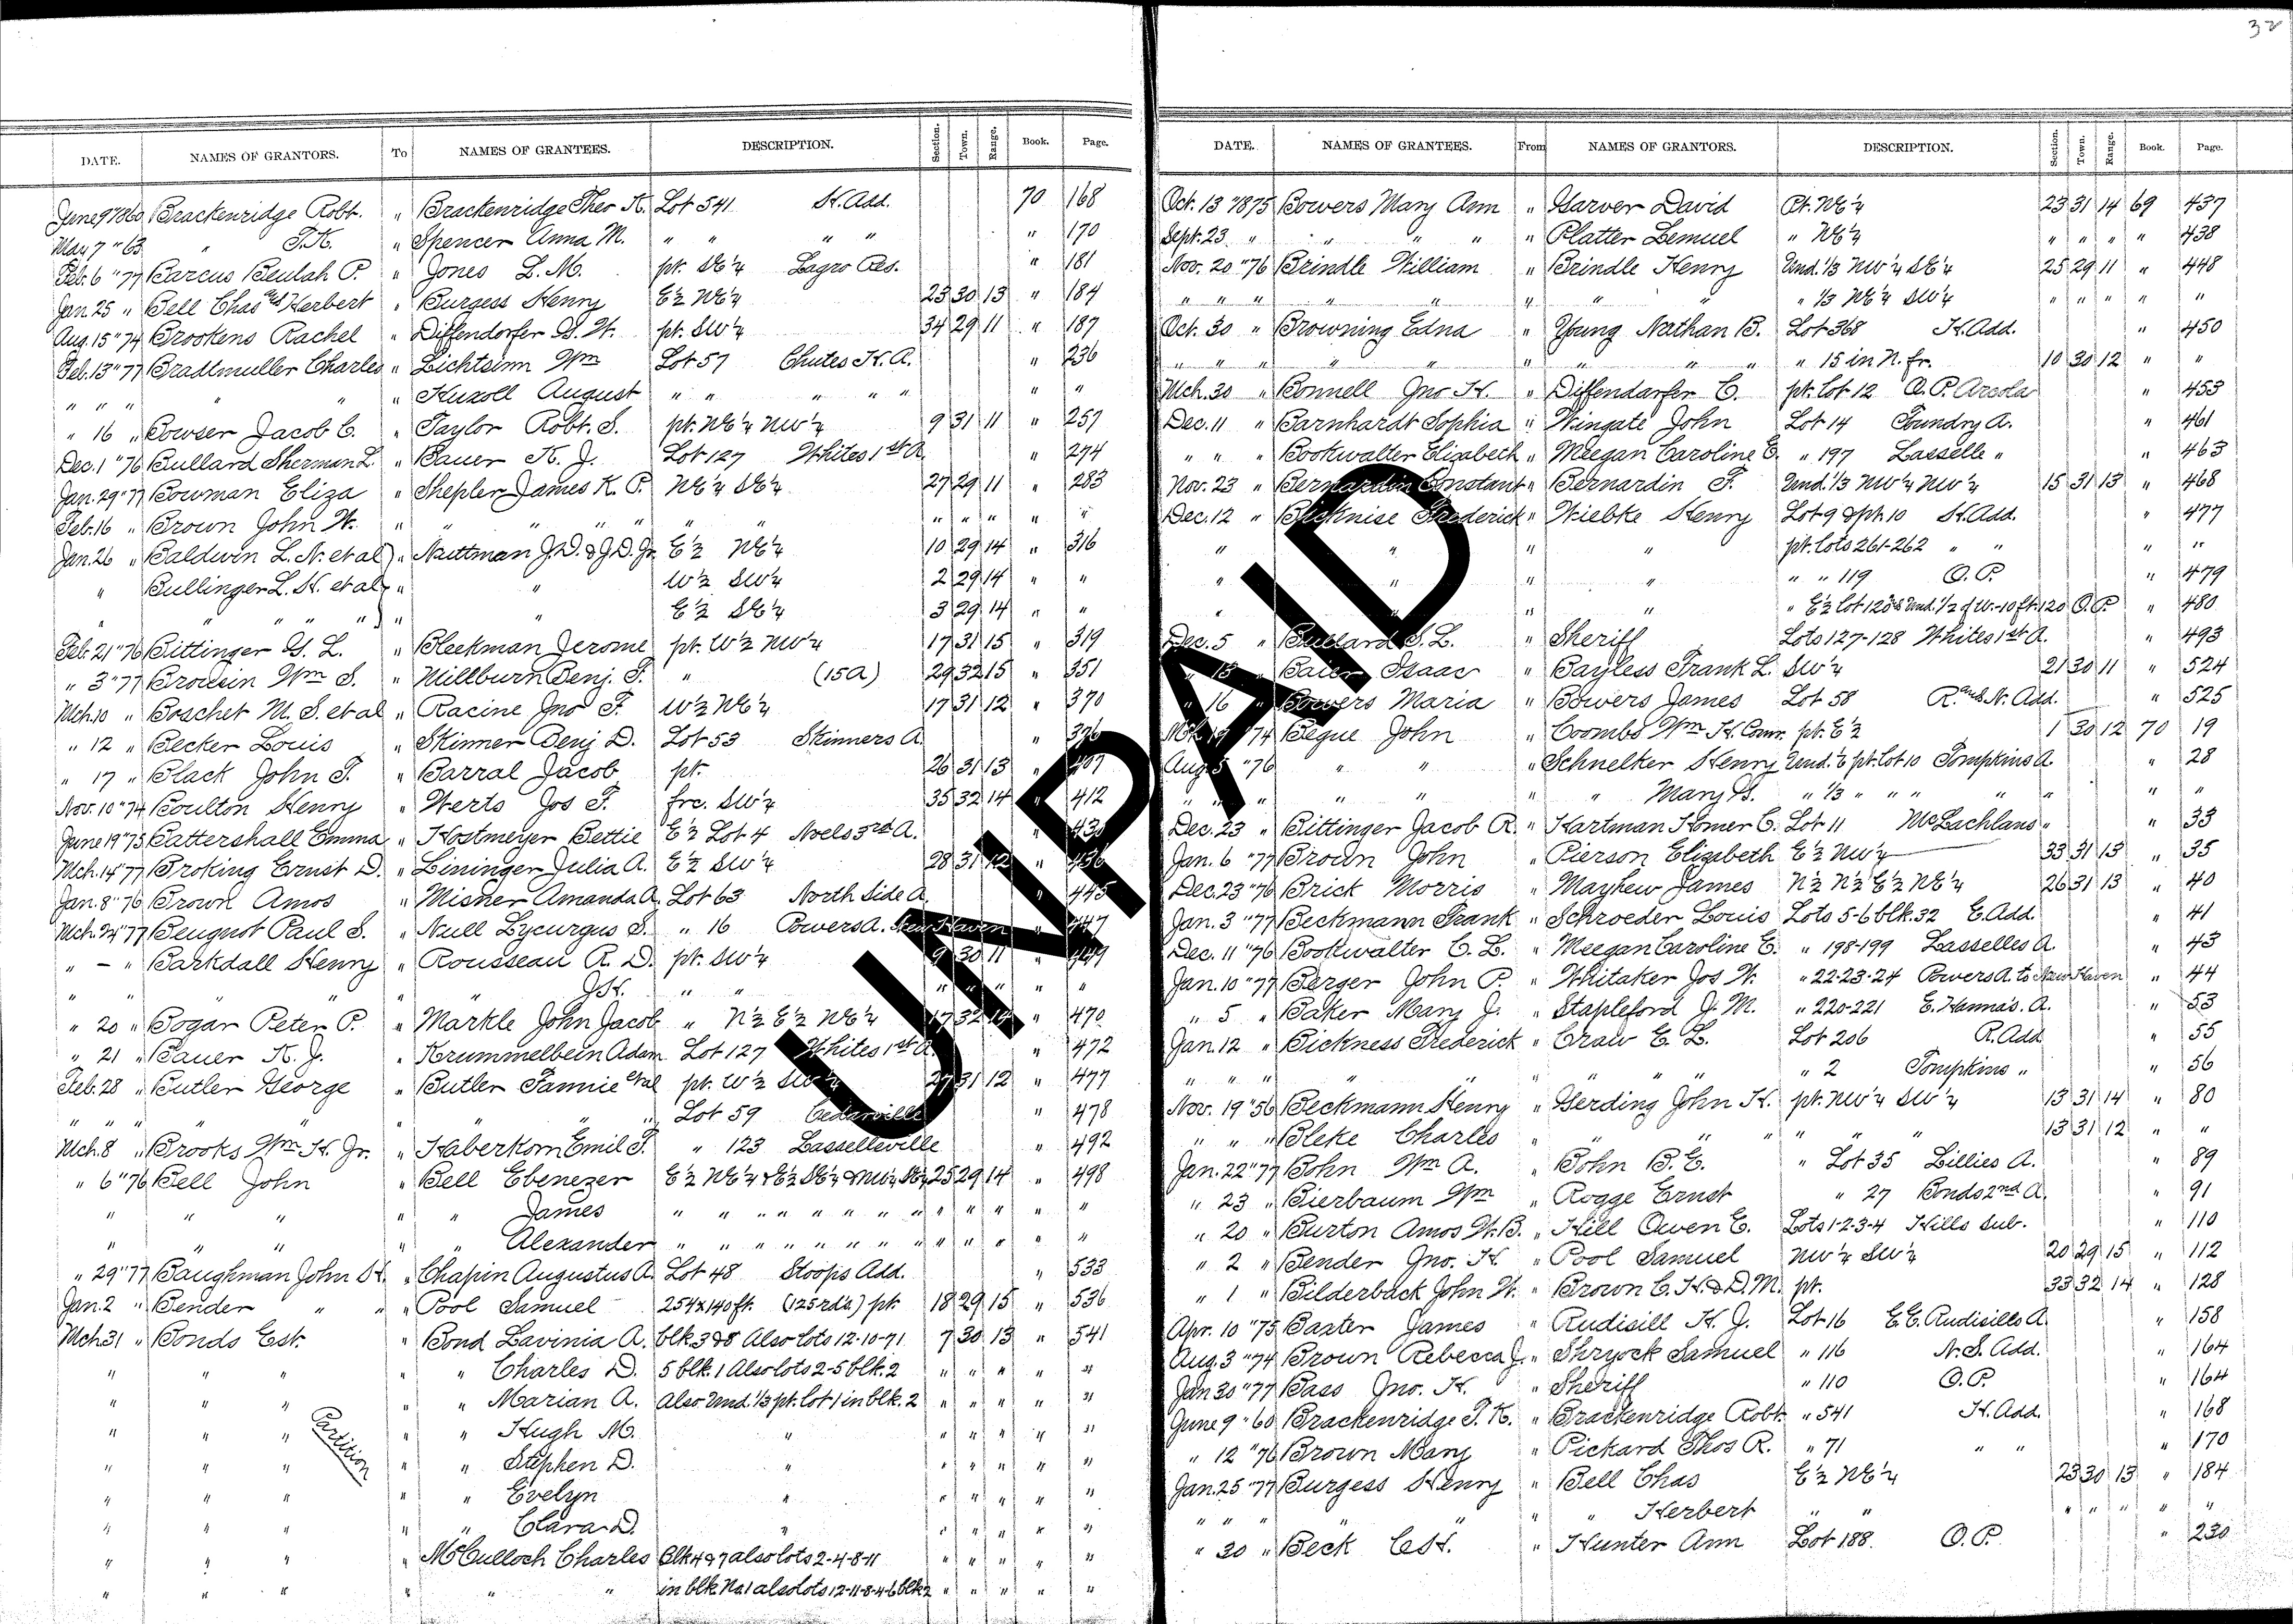 32
DATE. NAMES OF GRANTORS. To NAMES OF GRANTEES. DESCRIPTION. Section. Town. Range. Book. Page.
June 9 " 1860 Brackenridge Robt. " Brackenridge Theo K. Lot 541 H. Add. 70 168
May 7 " 63 " T.K. " Spencer Anna M. " " " " " 170
Feb. 6 " 77 Barcus Beulah P. " Jones L. M. pt. SE¼ Lagro Res. " 181
Jan. 25 " Bell Chas and Herbert " Burgess Henry E½ NE¼ 23 30 13 " 184
Aug. 15 " 74 Brookens Rachel " Diffendorfer G. W. pt. SW¼ 34 29 11 " 187
Feb. 13 " 77 Bradtmuller Charles " Lichtsinn Wm Lot 57 Chutes H. A. " 236
" " " " " " Kuxoll August " " " " " " "
" 16 " Bowser Jacob C. " Taylor Robt. S. pt. NE¼ NW¼ 9 31 11 " 257
Dec. 1 " 76 Bullard Sherman L. " Bauer K. J. Lot 127 Whites 1st A. " 274
Jan. 29 " 77 Bowman Eliza " Shepler James K. P. NE¼ SE¼ 27 29 11 " 283
Feb. 16 " Brown John W. " " " " " " " " " " "
Jan. 26 " Baldwin L. N. et al " Nuttman J. D. & J. D. Jr. E½ NE¼ 10 29 14 " 316
" Bullinger L. H. et al " " W½ SW¼ 2 29 14 " "
" " " " " " E½ SE¼ 3 29 14 " "
Feb. 21 " 76 Bittinger G. L. " Bleekman Jerome pt. W½ NW¼ 17 31 15 " 319
" 3 " 77 Browein Wm S. " Millburn Benj. F. " (15A) 29 32 15 " 351
Mch. 10 " Boschet M. S. et al " Racine Jno F. W½ NE¼ 17 31 12 " 370
" 12 " Becker Louis " Skinner Benj D. Lot 53 Skinners A. "
" 17 " Black John T. " Barral Jacob pt. 26 31 13 "
Nov. 10 " 74 Boulton Henry " Werts Jos F. frc. SW¼ 35 32 14 " 412
June 19 " 75 Battershall Emma " Hostmeyer Bettie E½ Lot 4 Noels 3rd A.
Mch. 14 " 77 Broking Ernst D. " Lininger Julia A. E½ SW¼ 28 31 12 " 436
Jan. 8 " 76 Brown Amos " Misner Amanda A. Lot 63 North Side A. 445
Mch. 24 " 77 Beugnot Paul S. " Null Lycurgus S. " 16 Powers A. New Haven 447
" - " Barkdall Henry " Rousseau R. D. pt. SW¼ 9 30 11 " 449
" " " " " J.H. " " " " " " "
" 20 " Bogar Peter P. " Markle John Jacob " N½ E½ NE¼ 17 32 14 " 470
" 21 " Bauer K. J. " Krummelbein Adam Lot 127 Whites 1st A. " 472
Feb. 28 " Butler George " Butler Fannie et al pt. W½ SW¼ 27 31 12 " 477
" " " " " " " Lot 59 Cedarville " 478
Mch. 8 " Brooks Wm H. Jr. " Haberkorn Emil F. " 123 Lasselleville " 492
" 6 " 76 Bell John " Bell Ebenezer E½ NE¼ & E½ SE¼ & NW¼ SE¼ 25 29 14 " 498
" " " " " James " " " " " " " " " " " " "
" " " " " Alexander " " " " " " " " " " " " "
" 29 " 77 Baughman John H. " Chapin Augustus A. Lot 48 Stoops Add. " 533
Jan. 2 " Bender " " " Pool Samuel 254 x 140 ft. (125 rds.) pt. 18 29 15 " 536
Mch 31 " Bonds Est. " Bond Lavinia A. blk. 3 & 8 Also lots 12-10-71 7 30 13 " 541
" " " " " Charles D. 5 blk. 1 Also lots 2-5 blk. 2 " " " " "
" " " " " Marian A. Also Und. ⅓ pt. lot 1 in blk. 2 " " " " "
" " " Partition " " Hugh M. " " " " " "
" " " " " Stephen D. " " " " " "
" " " " " Evelyn " " " " " "
" " " " " Clara D. " " " " " "
" " " " McCulloch Charles Blk 4 & 7 also lots 2-4-8-11 " " " " "
" " " " " " in blk No. 1 also lots 12-11-8-4-6 blk 2 " " " " "
DATE. NAMES OF GRANTEES. From NAMES OF GRANTORS. DESCRIPTION. Section. Town. Range. Book. Page.
Oct. 13 " 1875 Bowers Mary Ann " Garver David Pt. NE¼ 23 31 14 69 437
Sept. 23 " " " " " Platter Lemuel " NE¼ " " " " 438
Nov. 20 " 76 Brindle William " Brindle Henry Und. ⅓ NW¼ SE¼ 25 29 11 " 448
" " " " " " " " " ⅓ NE¼ SW¼ " " " " "
Oct. 30 " Browning Edna " Young Nathan B. Lot 368 H. Add. " 450
" " " " " " " " " 15 in N. fr. 10 30 12 " "
Mch. 30 " Bonnell Jno H. " Diffendarfer C. pt. Lot 12 O. P. Arcola " 453
Dec. 11 " Barnhardt Sophia " Wingate John Lot 14 Foundry A. " 461
" " " Bookwalter Elizabeth " Meegan Caroline E. " 197 Lasselle " " 463
Nov. 23 " Bernardin Constant " Bernardin F. Und. ⅓ NW¼ NW¼ 15 31 13 " 468
Dec. 12 " Frederick " Wiebke Henry Lot 9 & pt. 10 H. Add. " 477
" " " " pt. lots 261-262 " " " "
" " " " " " 119 O. P. " 479
" " " " E½ lot 120 & Und. ½ of W.-10 ft. 120 O. P. " 480
Dec. 5 " Bullard S. L. " Sheriff Lots 127-128 Whites 1st A. " 493
" 13 " Baier Isaac " Bayless Frank L. SW¼ 21 30 11 " 524
" 16 " Bowers Maria " Bowers James Lot 58 R. and N. Add. " 525
Mch 19 " 74 Beque John " Coombs Wm H. Comr. pt. E½ 1 30 12 70 19
Aug. 5 " 76 " " " Schnelker Henry Und. pt. lot 10 Tompkins A. " 28
" " " " " " " Mary B. " ⅓ " " " " " " "
Dec. 23 " Bittinger Jacob R. " Hartman Homer C. Lot 11 McLachlans " " 33
Jan. 6 " 77 Brown John " Pierson Elizabeth E½ NW¼ 33 31 13 " 35
Dec. 23 " 76 Brick Morris " Mayhew James N½ N½ E½ NE¼ 26 31 13 " 40
Jan. 3 " 77 Beckmann Frank " Schroeder Louis Lots 5-6 blk. 32 E. Add. " 41
Dec. 11 " 76 Bookwalter C. L. " Meegan Caroline E. " 198-199 Lasselles A. " 43
Jan. 10 " 77 Berger John P. " Whitaker Jos W. " 22-23-24 Powers A. to New Haven " 44
" 5 " Baker Mary J. " Stapleford J. M. " 220-221 E. Hanna's. A. " 53
Jan. 12 " Bickness Frederick " Craw E. L. Lot 206 R. Add " 55
" " " " " " " " " 2 Tompkins " " 56
Nov. 19 " 56 Beckmann Henry " Gerding John H. pt. NW¼ SW¼ 13 31 14 " 80
" " " Bleke Charles " " " " " " 13 31 12 " "
Jan. 22 " 77 Bohn Wm A. " Bohn B. E. " Lot 35 Lillies A. " 89
" 23 " Bierbaum Wm " Rogge Ernst " 27 Bonds 2nd A. " 91
" 20 " Burton Amos W. B. " Hill Owen E. Lots 1-2-3-4 Hills Sub. " 110
" 2 " Bender Jno. H. " Pool Samuel NW¼ SW¼ 20 29 15 " 112
" 1 " Bilderback John W. " Brown C. H. & D. M. pt. 33 32 14 " 128
Apr. 10 " 75 Baxter James " Rudisill H. J. Lot 16 E. E. Rudisills A. " 158
Aug. 3 " 74 Brown Rebecca J. " Shryock Samuel " 116 N. S. Add. " 164
Jan 30 " 77 Bass Jno. H. " Sheriff " 110 O. P. " 164
June 9 " 60 Brackenridge T. K. " Brackenridge Robt. " 541 H. Add. " 168
" 12 " 76 Brown Mary " Pickard Thos R. " 71 " " " 170
Jan. 25 " 77 Burgess Henry " Bell Chas E½ NE¼ 23 30 13 " 184
" " " " " Herbert " " " " " " "
" 30 " Beck C. H. " Hunter Ann Lot 188. O. P. " 230
UNPAID